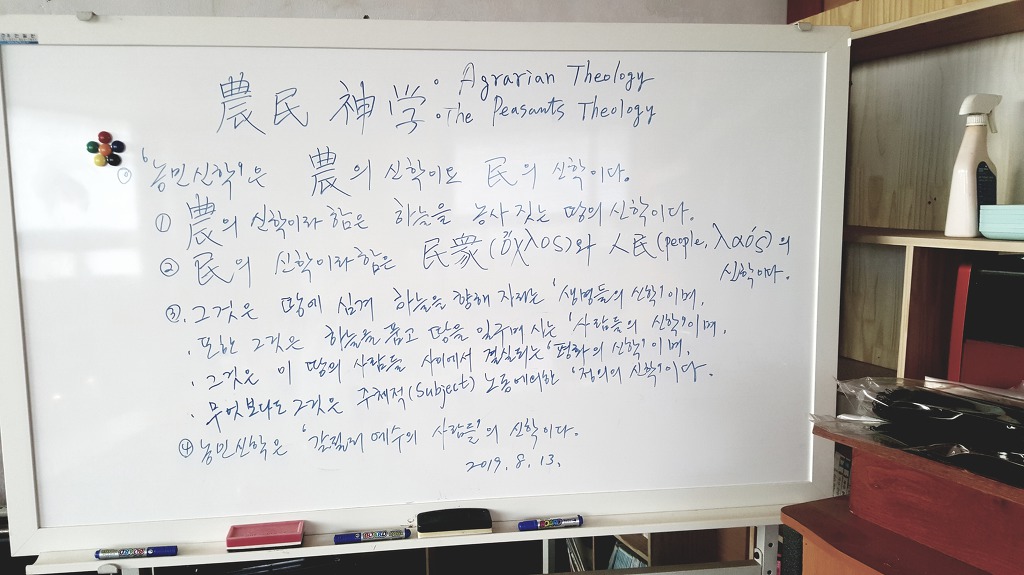 農民 神学 • Agrarian Theology
• The Peasants Theology
⓪ '농민신학'은 農의 신학이요 民의 신학이다.
① 農의 신학이라 함은 하늘을 농사 짓는 땅의 신학이다.
② 民의 신학이라 함은 民衆(ὄχλος)와 人民(people, λαός)의
신학이다.
③. 그것은 땅에 심겨 하늘을 향해 자라는 '생명들의 신학'이며,
. 또한 그것은 하늘을 품고 땅을 일구며 사는 '사람들의 신학'이며,
. 그것은 이 땅의 사람들 사이에서 결실되는 '평화의 신학'이며,
. 무엇보다도 그것은 주체적(Subject) 노동에 의한 '정의의 신학'이다.
④ 농민신학은 '갈릴리 예수의 사람들'의 신학이다.
2019. 8. 13.